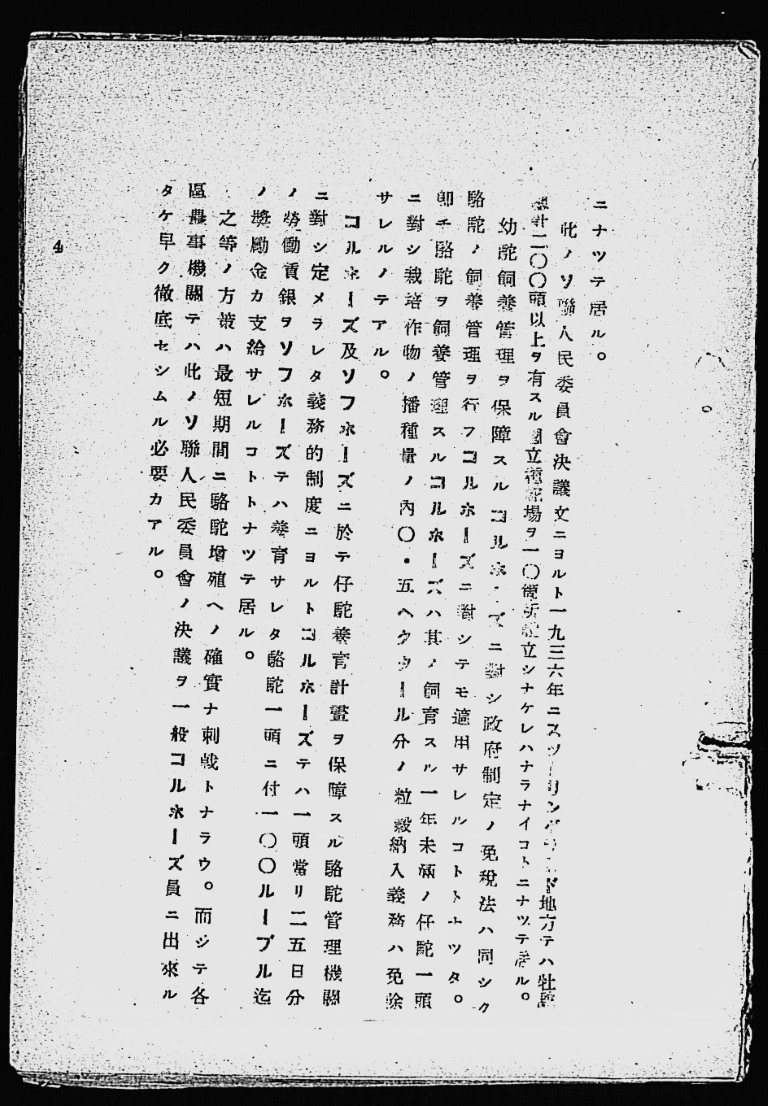 ニナツテ居ル。
此ノソ聯人民委員會決議文ニヨルト一九三六年ニスターリングラード地方テハ牡駝
總計二〇〇頭以上ヲ有スル國立種駝場ヲ一〇箇所設立シナケレハナラナイコトニナツテ居ル。
幼駝飼養管理ヲ保障スルコルホーズニ對シ政府制定ノ免税法ハ同シク
駱駝ノ飼養管理ヲ行フコルホーズニ對シテモ適用サレルコトトナツタ。
卽チ駱駝ヲ飼養管理スルコルホーズハ其ノ飼育スル一年未滿ノ仔駝一頭
ニ對シ栽培作物ノ播種量ノ內〇・五ヘクタール分ノ粒穀納入義務ハ免除
サレルノテアル。
コルホーズ及ソフホーズニ於テ仔駝養育計畫ヲ保障スル駱駝管理機關
ニ對シ定メラレタ義務的制度ニヨルトコルホーズテハ一頭當リ二五日分
ノ勞働賃銀ヲソフホーズテハ養育サレタ駱駝一頭ニ付一〇〇ルーブル迄
ノ奬勵金カ支給サレルコトトナツテ居ル。
之等ノ方策ハ最短期間ニ駱駝增殖ヘノ確實ナ刺戟トナラウ。而シテ各
區農事機關テハ此ノソ聯人民委員會ノ決議ヲ一般コルホーズ員ニ出來ル
タケ早ク徹底セシムル必要カアル。
4